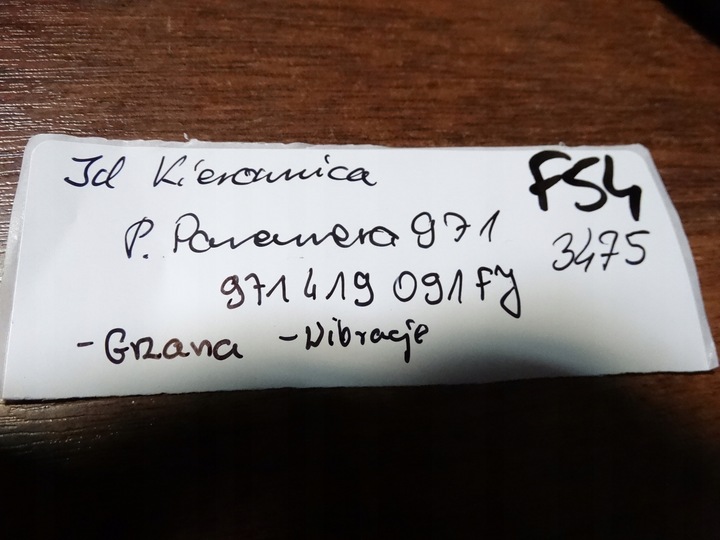 Id Kierownica
FS4
P. Panamera 971
3475
971 419 091 FJ
- Grzana - Wibracje